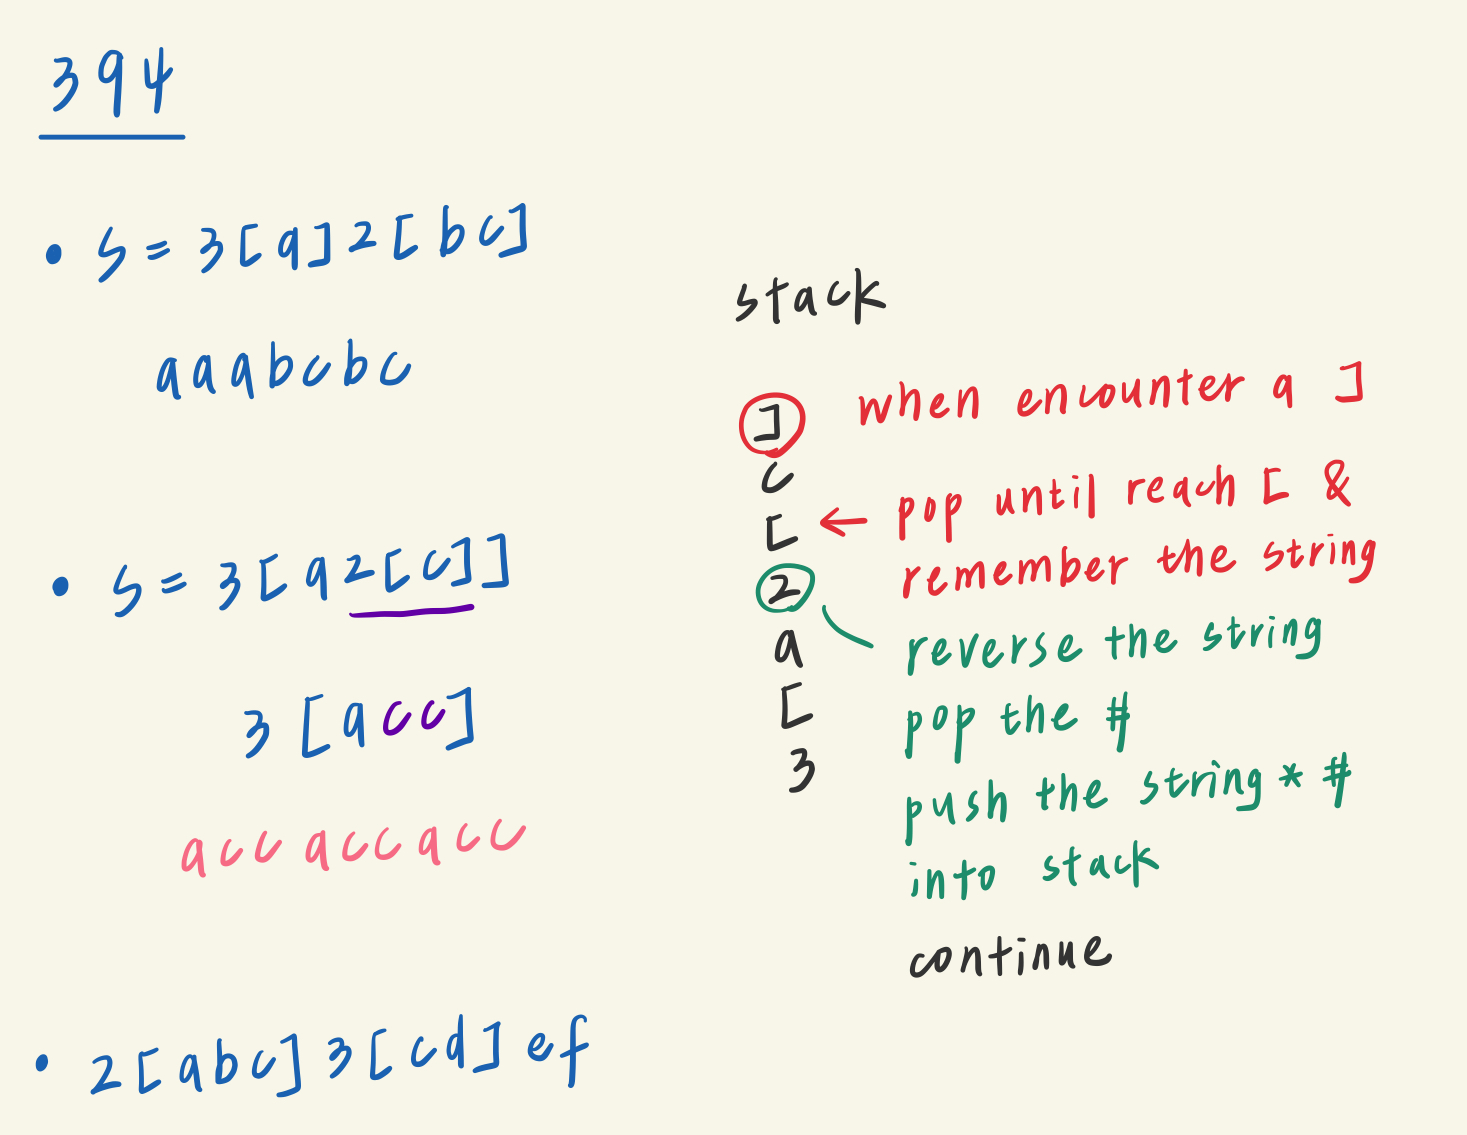 394
• S = 3[a]2[bc]
aaabcbc
• S = 3[a2[c]]
3[acc]
accaccacc
• 2[abc]3[cd]ef
stack
]
c
[
2
a
[
3
when encounter a ]
← pop until reach [ &
remember the string
reverse the string
pop the #
push the string * #
into stack
continue